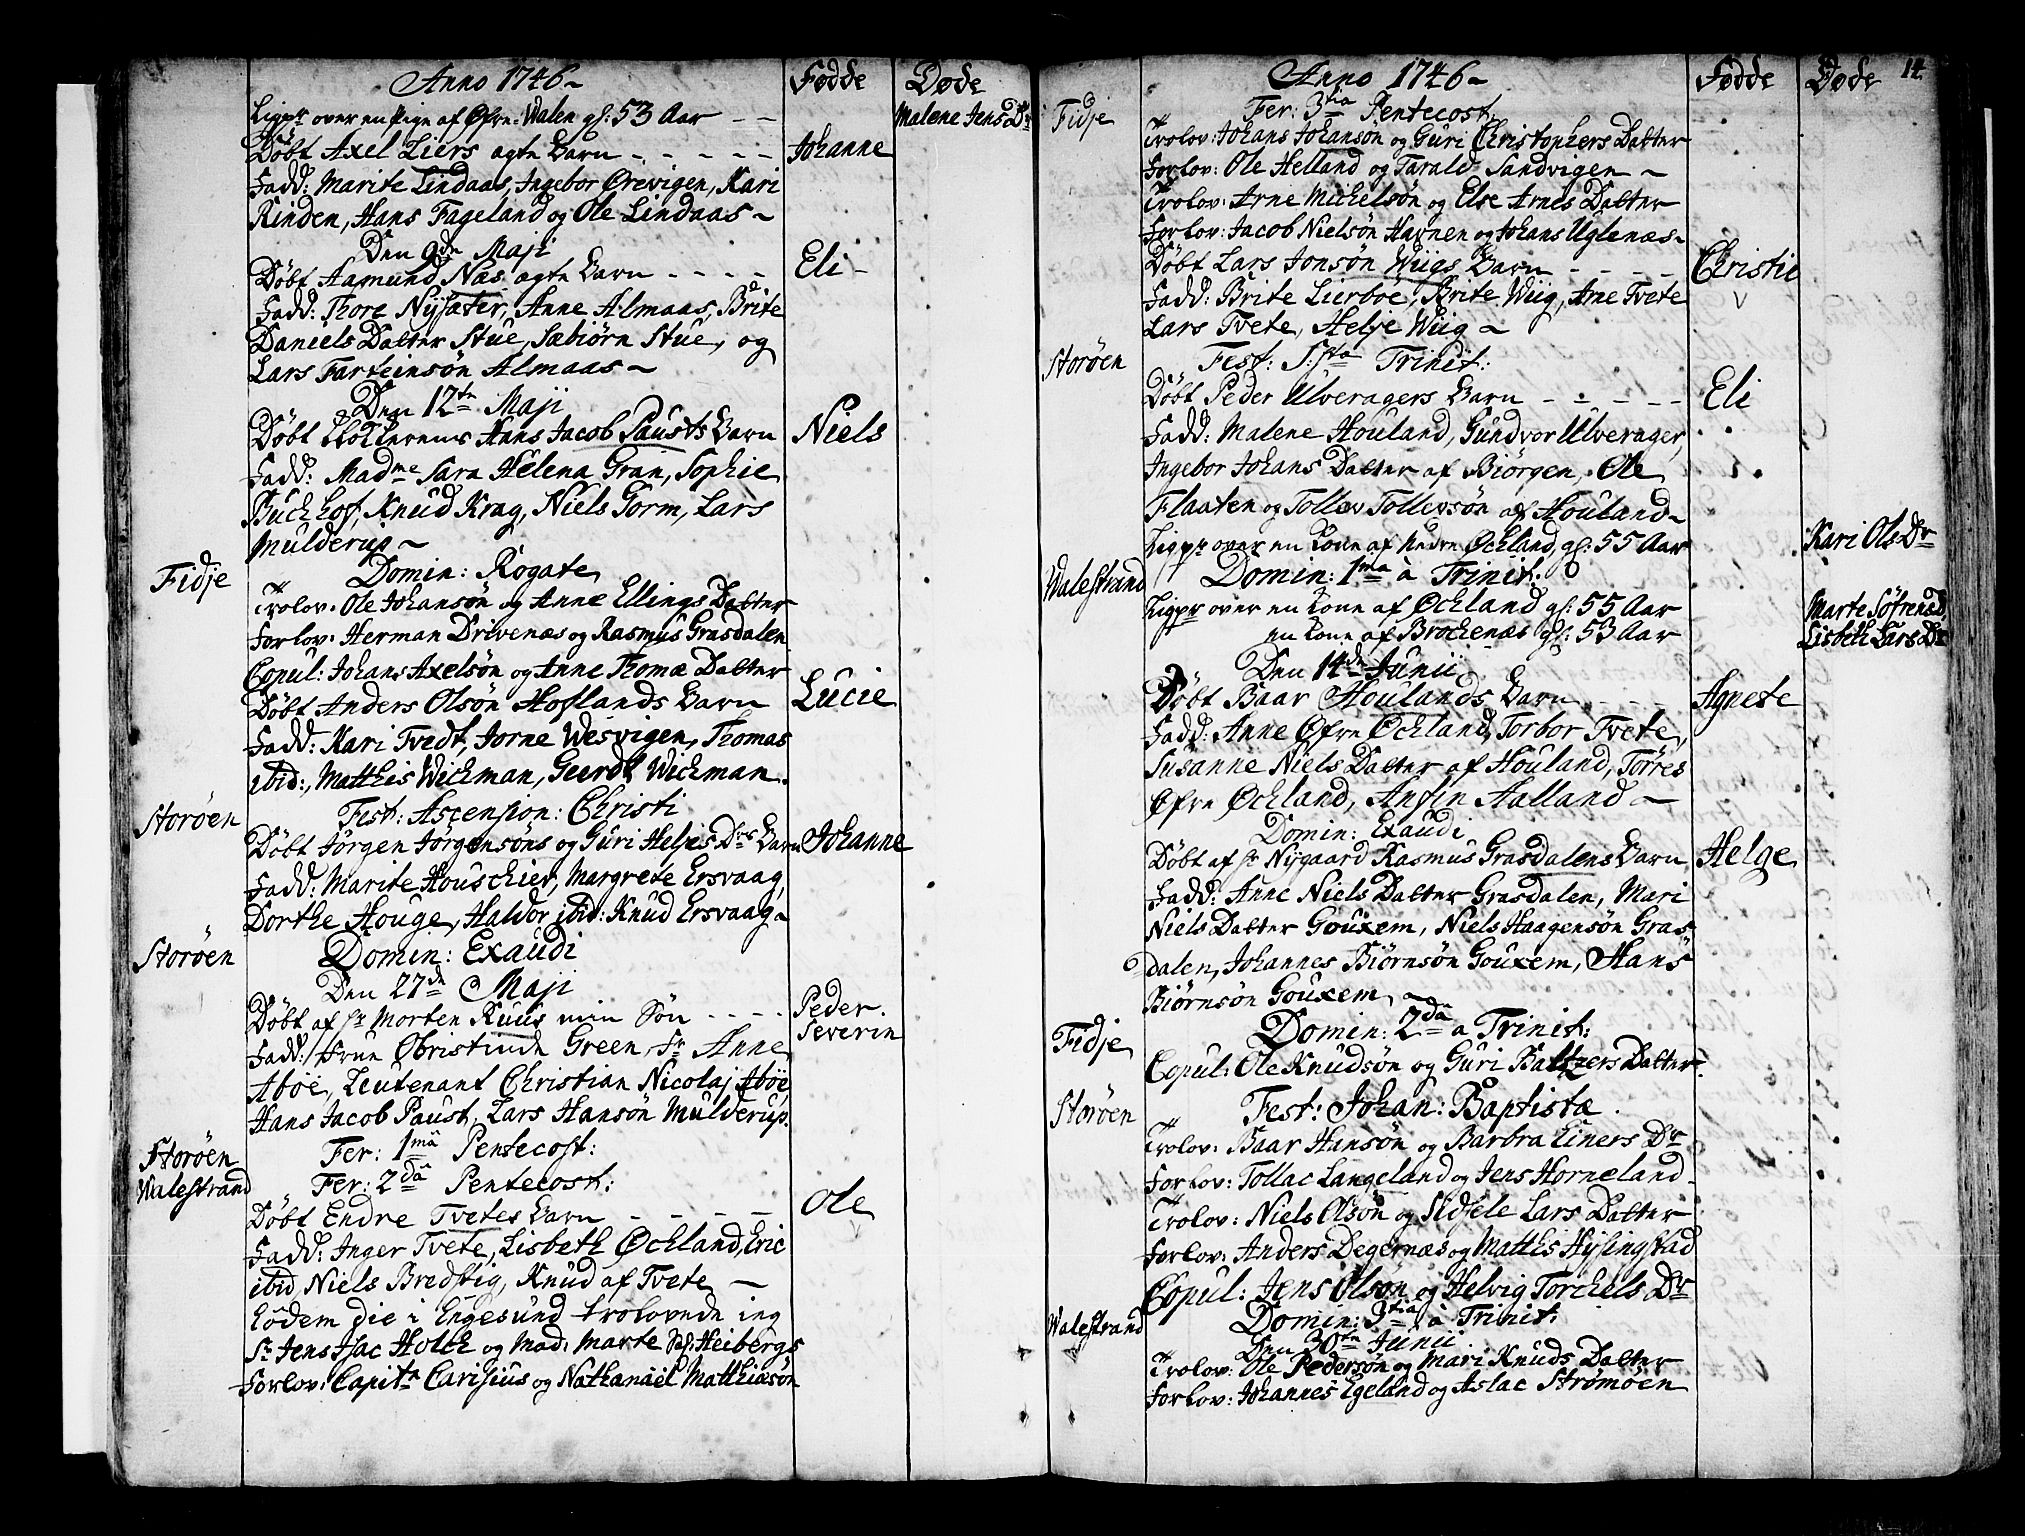 Anno 1746 ~
Fødde
Døde
Ligpr over en Pige af Øfre: Walen gl: 53 Aar - -
Malene Jens Dr
Døbt Axel Liers ægte Barn - - - - -
Johanne
Fadd: Marite Lindaas, Ingebor Ørevigen, Kari
Kinden, Hans Fageland og Ole Lindaas ~
Den 9de Maji
Døbt Aamund Næs ægte Barn - - - -
Eli -
Fadd: Thore Nysæter, Anne Almaas, Brite
Daniels Datter Stue, Sæbiørn Stue, og
Lars Farteinsön Almaas ~
Den 12te Maji
Døbt Hans Jacob Pausts Barn
Niels
Fadd: Madme Sara Helena Gran, Sophie
Buchhof, Knud Krag, Niels Gorm, Lars
Mulderup ~
Fidje
Domin: Rogate
Trolov: Ole Johansön og Anne Ellings Datter
Forlov: Herman Drivenæs og Rasmus Grasdalen
Copul: Johans Axelsön og Anne Thomæ Datter
Døbt Anders Olsön Hoflands Barn
Lucie
Fadd: Kari Tvedt, Jorne Wesvigen, Thomas
ibid:, Matthis Wichman, Geerdt Wichman.
Storøen
Fest: Ascension: Christi
Døbt Jörgen Jörgensöns og Guri Heljes Drs Barn
Johanne
Fadd: Marite Houschier, Margrete Ersvaag,
Dorthe Houge, Haldor ibid: Knud Ersvaag ~
Storøen
Domin: Exaudi
Den 27de Maji
Døbt af Hr Morten Ruus min Sön - - - -
Peder.
Severin
Fadd: Frue Obristinde Green, Fr Anne
Aboe, Leutenant Christian Nicolaj Aboe,
Hans Jacob Paust, Lars Hansön Mulderup.
Storøen
Fer: 1ma Pentecost:
Walestrand
Fer: 2da Pentecost:
Døbt Endre Tvetes Barn - - - -
Ole
Fadd: Inger Tvete, Lisbeth Øchland, Eric
ibid, Niels Bredvig, Knud af Tvete ~
Eodem die i Engesund trolovede ieg
Sr Jens Isac Holck og Mad: Marte Heibergs
Forlov: Capitn Carisius og Nathanael Matthiæsön
14
Anno 1746 ~
Fødde
Døde
Fidje
Fer: 3tia Pentecost.
Trolov: Johans Johansön og Guri Christophers Datter
Forlov: Ole Helland og Tarald Sandvigen ~
Trolov: Arne Michelsön og Else Arnes Datter
Forlov: Jacob Nielsön Hafnen og Johans Uglenæs ~
Døbt Lars Jonsön Wiigs Barn - - - -
Christie
Fadd: Brite Lierboe, Brite Wiig, Arne Tvete
Lars Tvete, Helje Wiig ~
Storøen
Fest: S:sta Trinit:
Døbt Peder Ulveragers Barn - - - - -
Eli
Fadd: Malene Houland, Gundvor Ulverager,
Ingebor Johans Datter af Biørgen, Ole
Flaaten og Tollev Tollevsön af Houland ~
Ligpr over en Kone af Nedre Øchland, gl: 55 Aar
Kari Ols Dr
Walestrand
Domin: 1ma à Trinit:
Ligpr over en Kone af Øchland gl: 55 Aar
Marte Söfrensd
en Kone af Brochenæs gl: 53 Aar
Lisbeth Lars Dr
Den 14de Junii
Døbt Baar Houlands Barn - - - -
Agnete
Fadd: Anne Øfre Øchland, Torbor Tvete,
Susanne Niels Datter af Houland, Törres
Øfre Øchland, Anfin Aalland ~
Domin: Exaudi
Døbt af Hr Nygaard Rasmus Grasdalens Barn
Helge
Fadd: Anne Niels Datter Grasdalen, Mari
Niels Datter Gouxem, Niels Haagensön Gras
dalen, Johannes Biörnsön Gouxem, Hans
Biörnsön Gouxem ~
Fidje
Domin: 2da à Trinit:
Copul: Ole Knudsön og Guri Baltzers Datter.
Storøen
Fest: Johan: Baptistæ.
Trolov: Baar Hansön og Barbra Einers Dr
Forlov: Tollac Langeland og Jens Horneland.
Trolov: Niels Olsön og Sidsele Lars Datter
Forlov: Anders Degernæs og Matthis Hysingstad
Copul: Jens Olsön og Helvig Torchels Dr
Walestrand
Domin: 3tia à Trinit:
Den 30te Junii
Trolov: Ole Pedersön og Mari Knuds Datter
Forlov: Johannes Egeland og Aslac Strømøen